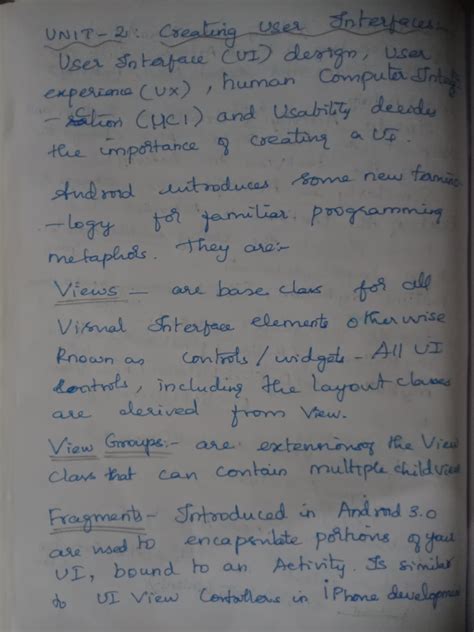 UNIT-2: Creating User Interfaces:-
User Interface (UI) design, User
experience (UX), human Computer Integ
-ration (HCI) and Usability decides
the importance of creating a UI.
Android introduces some new termino
-logy for familiar programming
metaphors. They are:-
Views :- are base class for all
Visual Interface elements otherwise
Known as controls/widgets - All UI
controls, including the layout classes
are derived from View.
View Groups:- are extensions of the View
Class that can contain multiple child view
Fragments- Introduced in Android 3.0
are used to encapsulate portions of your
UI, bound to an Activity. Is similar
to UI View Controllers in iPhone development